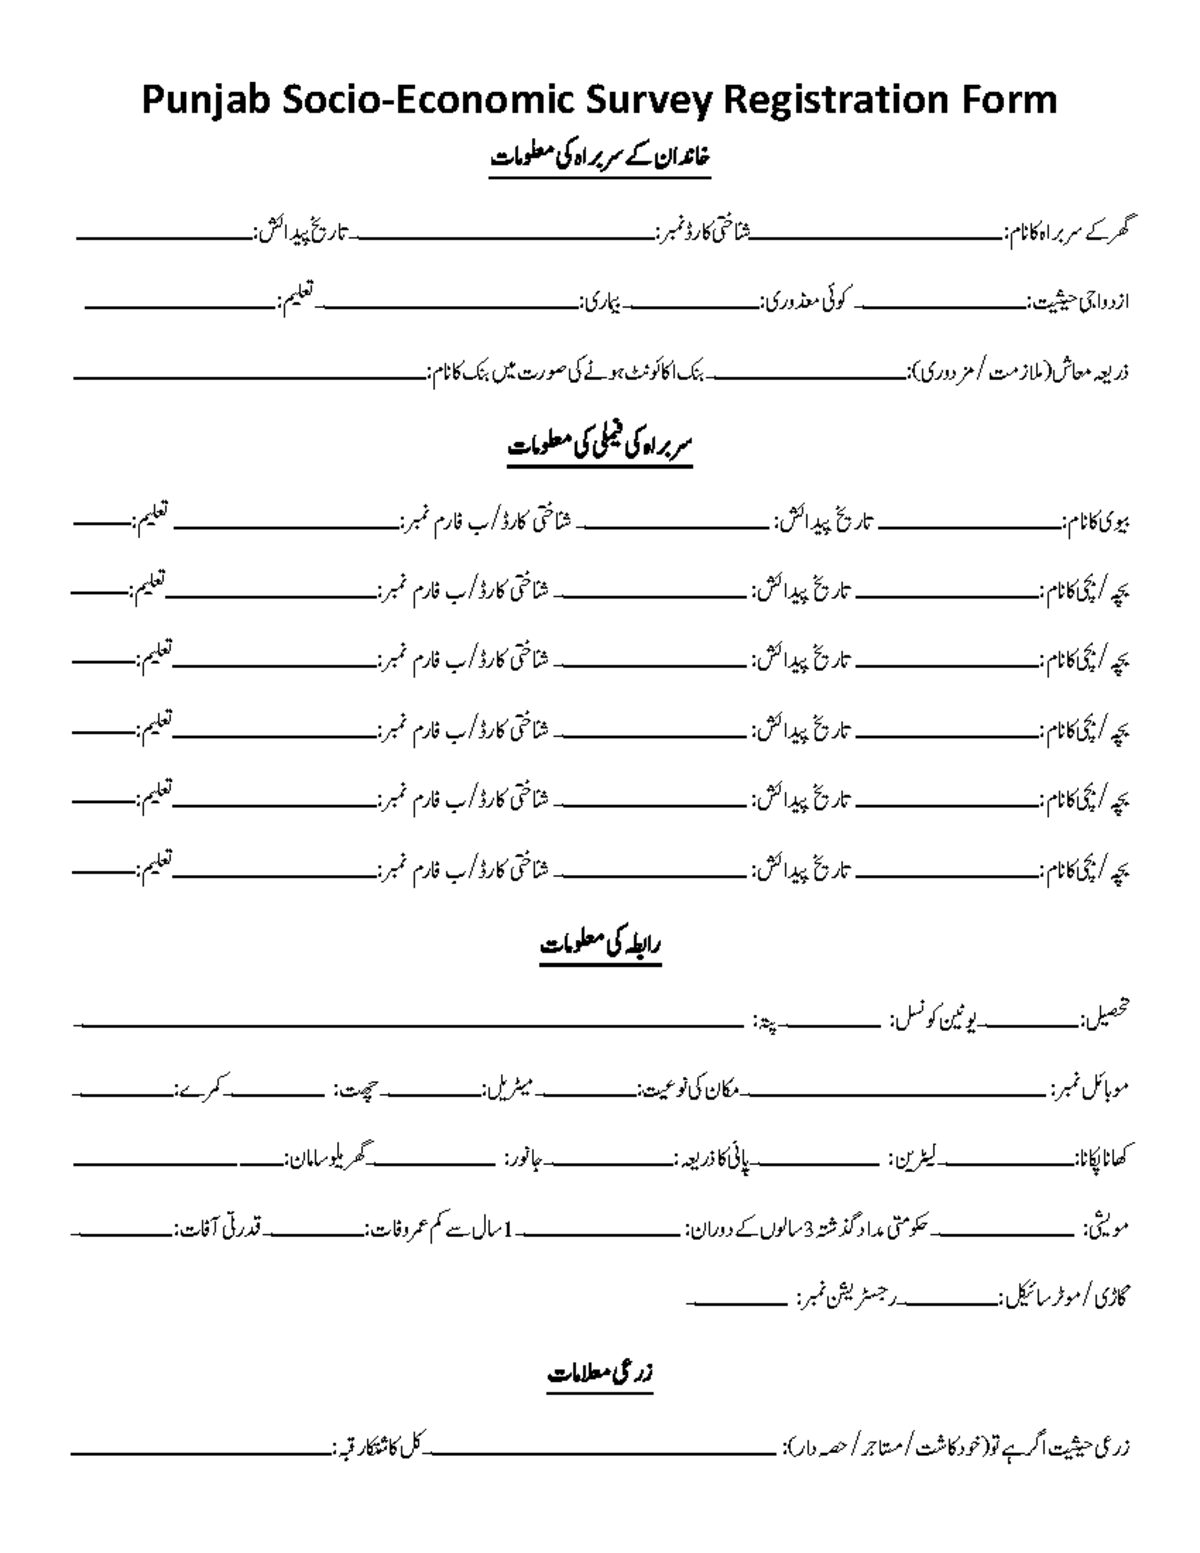 Punjab Socio-Economic Survey Registration Form
خاندان کے سربراہ کی معلومات
گھر کے سربراہ کا نام: شناختی کارڈ نمبر: تاریخ پیدائش:
ازدواجی حیثیت: کوئی معذوری: بیماری: تعلیم:
ذریعہ معاش (ملازمت / مزدوری): بنک اکائونٹ ہونے کی صورت میں بنک کا نام:
سربراہ کی فیملی کی معلومات
بیوی کا نام: تاریخ پیدائش: شناختی کارڈ/ب فارم نمبر: تعلیم:
بچہ / بچی کا نام: تاریخ پیدائش: شناختی کارڈ/ب فارم نمبر: تعلیم:
بچہ / بچی کا نام: تاریخ پیدائش: شناختی کارڈ/ب فارم نمبر: تعلیم:
بچہ / بچی کا نام: تاریخ پیدائش: شناختی کارڈ/ب فارم نمبر: تعلیم:
بچہ / بچی کا نام: تاریخ پیدائش: شناختی کارڈ/ب فارم نمبر: تعلیم:
بچہ / بچی کا نام: تاریخ پیدائش: شناختی کارڈ/ب فارم نمبر: تعلیم:
رابطہ کی معلومات
تحصیل: یونین کونسل: پتہ:
موبائل نمبر: مکان کی نوعیت: میٹریل: چھت: کمرے:
کھانا پکانا: لیٹرین: پانی کا ذریعہ: جانور: گھریلو سامان:
مویشی: حکومتی مداد گذشتہ 3 سالوں کے دوران: 1 سال سے کم عمر وفات: قدرتی آفات:
گاڑی / موٹر سائیکل: رجسٹریشن نمبر:
زرعی معلامات
زرعی حیثیت اگر ہے تو (خود کاشت / مستاجر / حصہ دار): کل کاشتکار رقبہ: